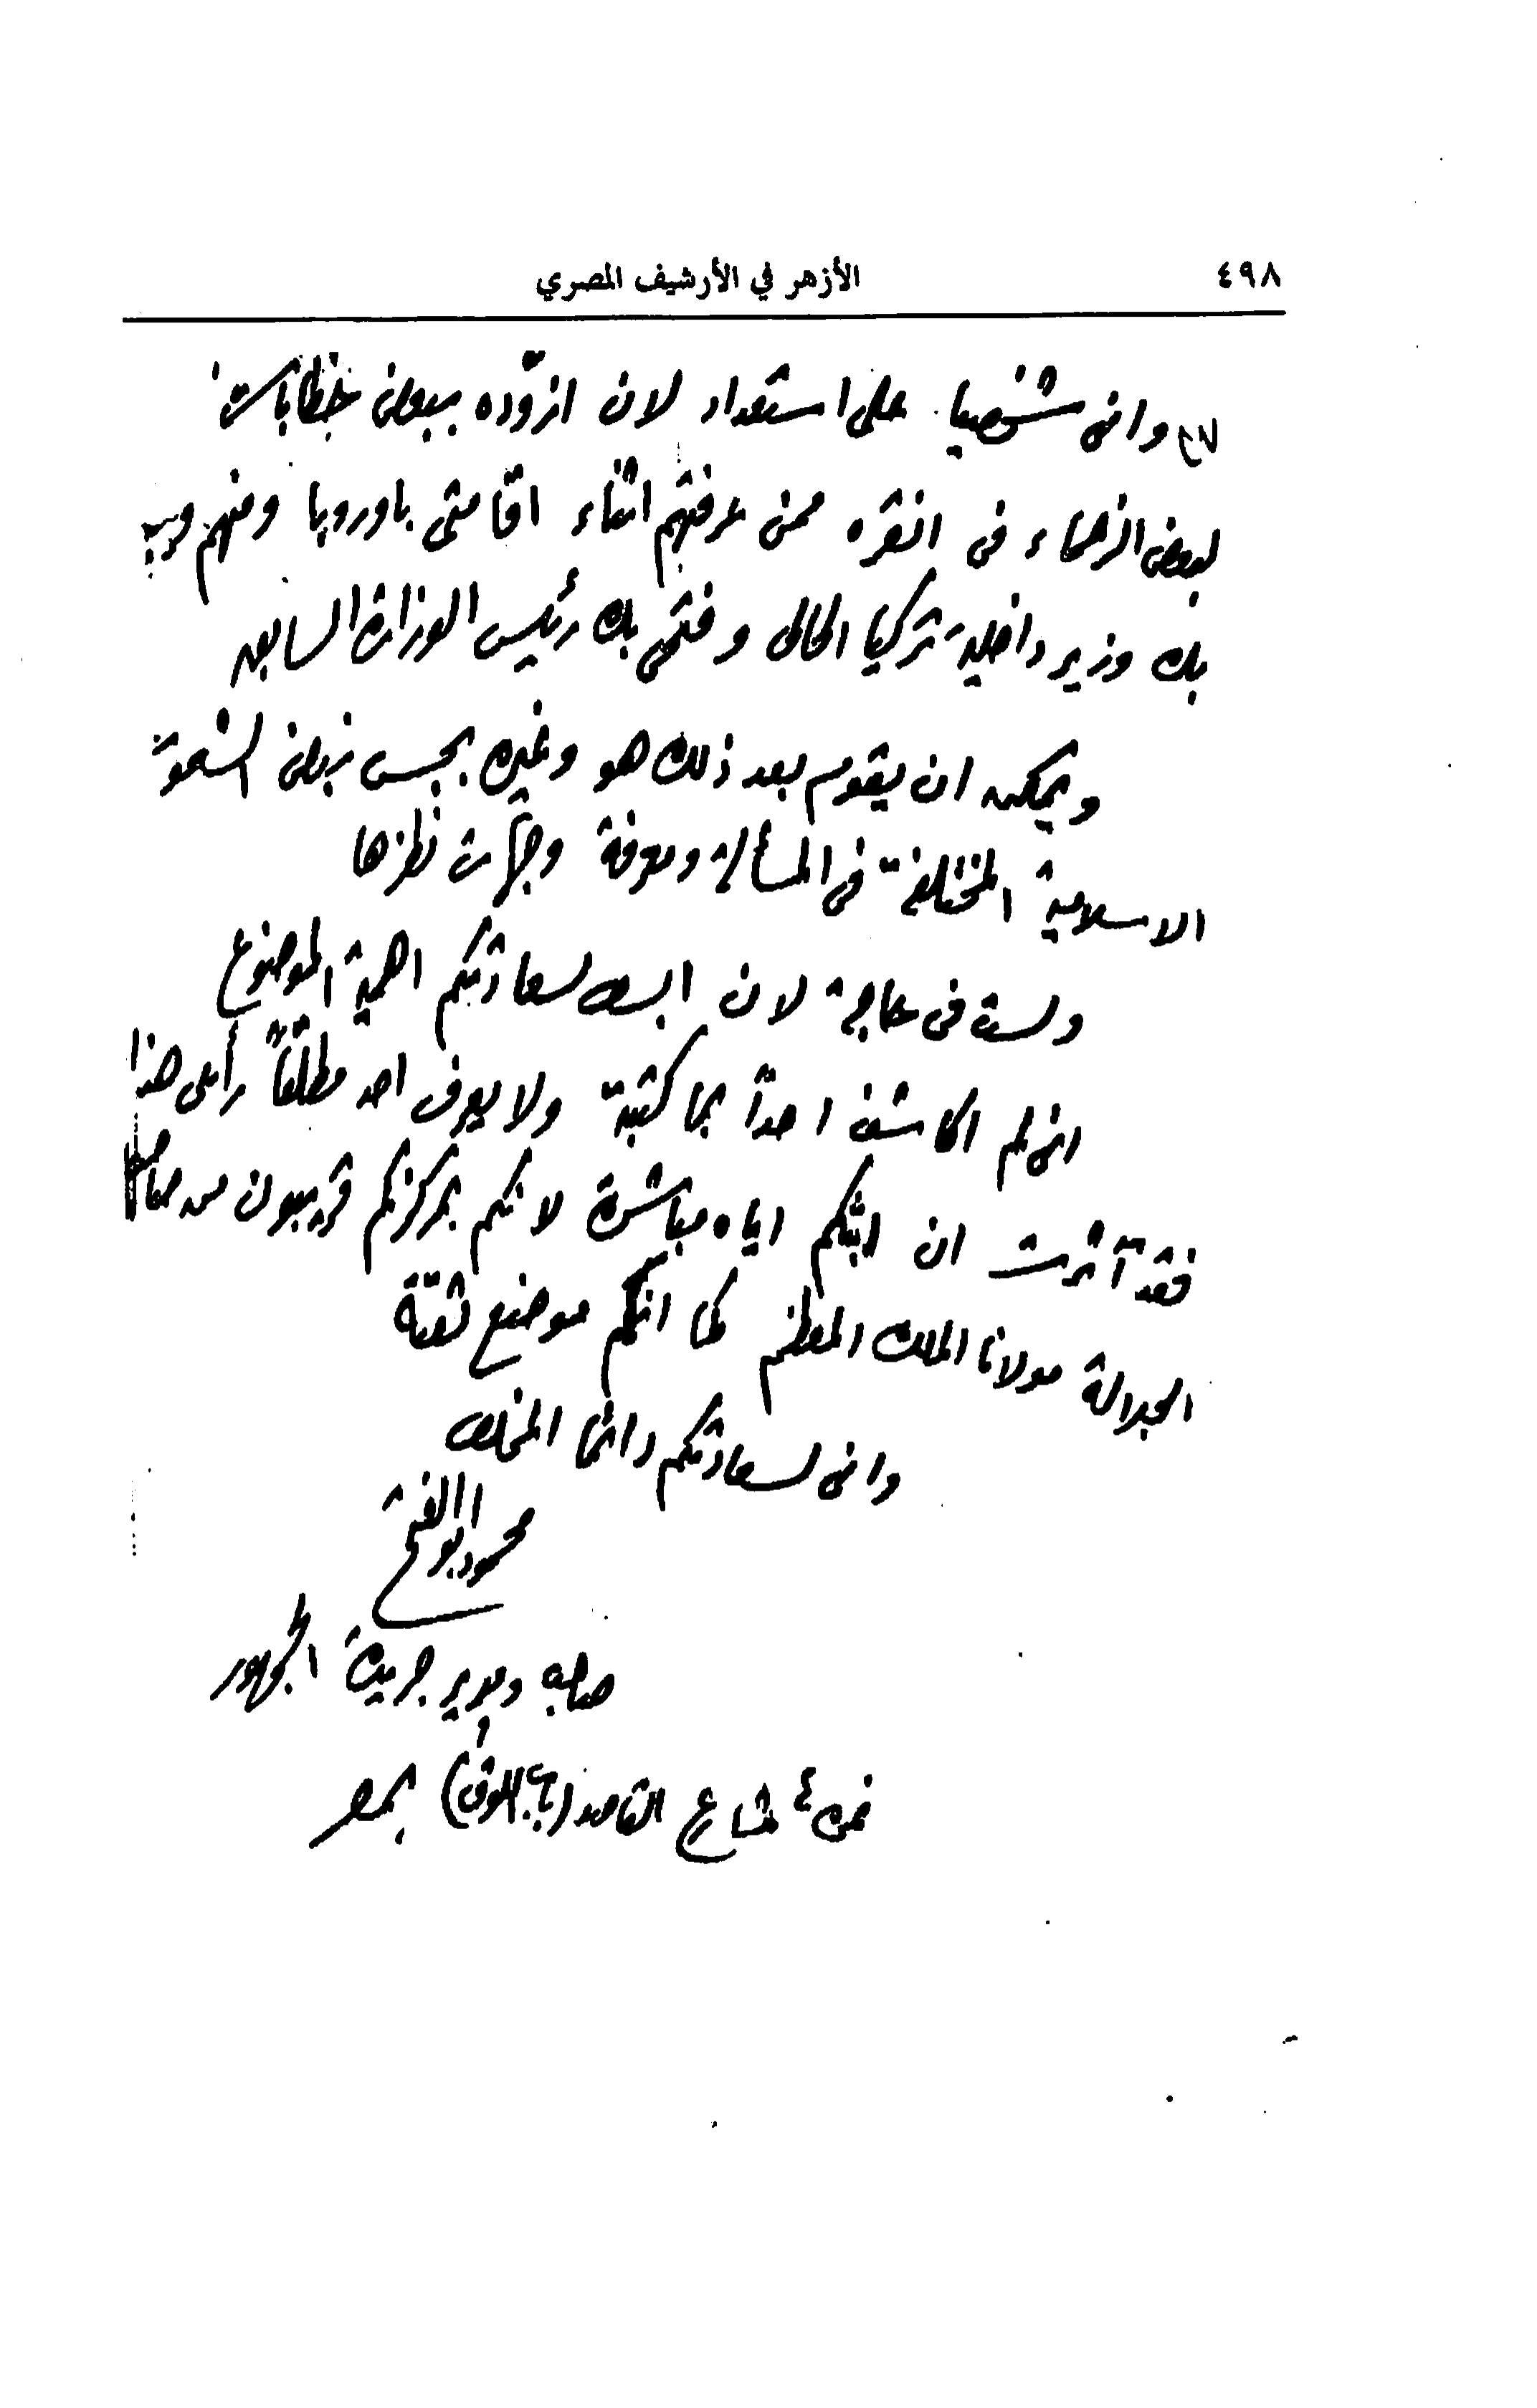 ٤٩٨
الأزهر في الأرشيف المصري
وانى شخصيا على استعداد لان ازوّده ببعض خطابات
لبعض الزعماء فى انقره ممن عرفتهم اثناء اقامتى باوروبا ومنهم
بك وزير داخلية تركيا الحالى وفتحى بك رئيس الوزارة السابق
ويمكنه ان يقوم بعد ذلك هو وغيره بجس نبض الشعوب
الاسلامية المختلفة فى المسألة ومعرفة وجهات نظرها
ولست فى حاجة لان ابسط لسعادتكم اهمية الموضوع
انى لم اكاشف احداً بما كتبة ولا يعرف احد مطلقاً رأيى هذا
فقد آثرت ان ابثكم اياه مباشرة لانكم بمركزكم قريبون من صاحب
الجلالة مولانا الملك المعظم كما انكم موضع ثقتة
وانى لسعادتكم دائما المخلص
محمود ابو الفتح
صاحب ومدير جريدة الجمهور
نمرة ٤ شارع القاصد (باب اللوق) بمصر